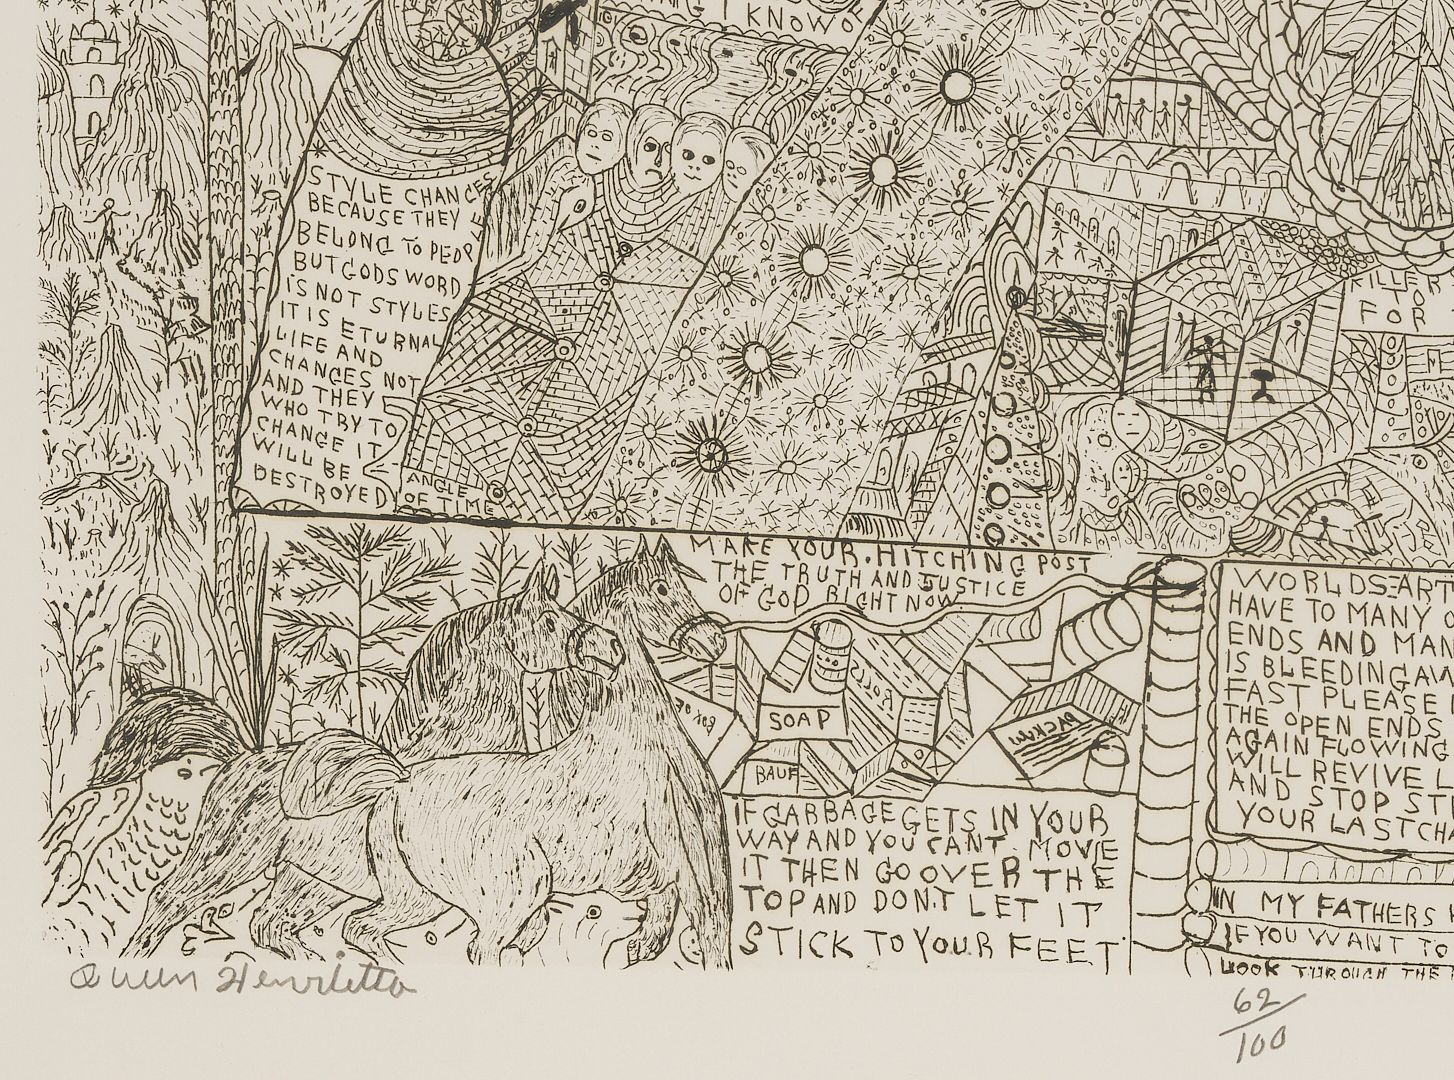 I KNOW
STYLE CHANGE
BECAUSE THEY
BELONG TO PEOP
BUT GODS WORD
IS NOT STYLES
IT IS ETURNAL
LIFE AND
CHANCES NOT
AND THEY
WHO TRY TO
CHANGE IT
WILL BE
DESTROYED
ANGLE
OF TIME
FOR
MAKE YOUR. HITCHING POST
THE TRUTH AND JUSTICE
OF GOD RIGHT NOW
SOAP
BAUF
BOX OF
IF GARBAGE GETS IN YOUR
WAY AND YOU CANT MOVE
IT THEN GO OVER THE
TOP AND DON.T LET IT
STICK TO YOUR FEET
WORLDS ART
HAVE TO MANY O
ENDS AND MAN
IS BLEEDING AW
FAST PLEASE
THE OPEN ENDS
AGAIN FLOWING
WILL REVIVE L
AND STOP ST
YOUR LAST CH
IN MY FATHERS H
IF YOU WANT TO
LOOK THROUGH THE
Queen Henrietta
62/100